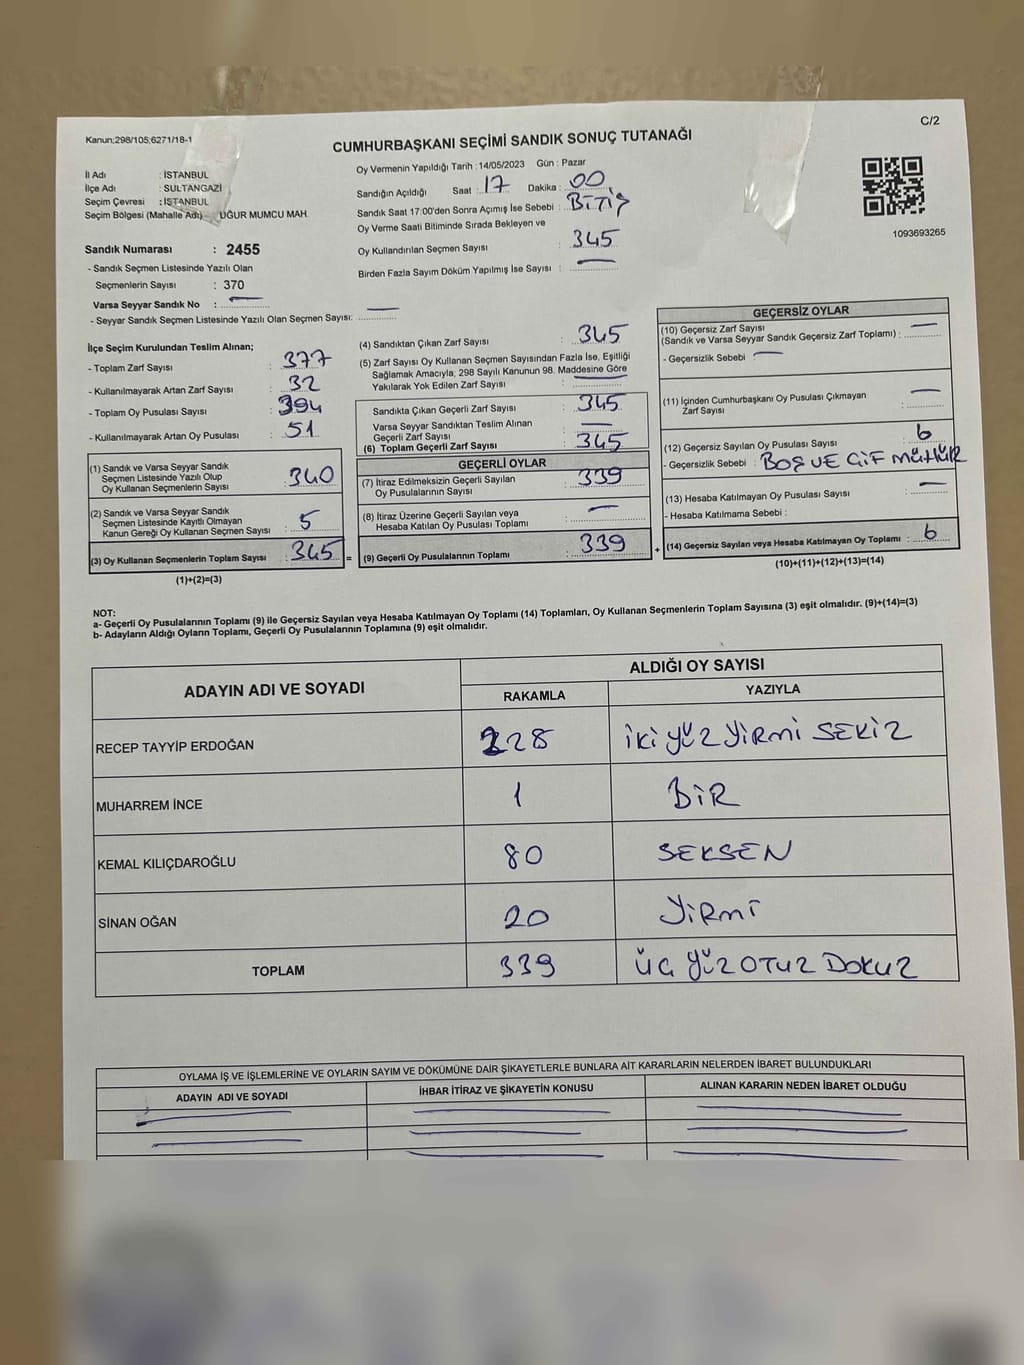 Kanun;298/105;6271/18-1
C/2
CUMHURBAŞKANI SEÇİMİ SANDIK SONUÇ TUTANAĞI
İl Adı : İSTANBUL
İlçe Adı : SULTANGAZİ
Seçim Çevresi : İSTANBUL
Seçim Bölgesi (Mahalle Adı) UĞUR MUMCU MAH.
Sandık Numarası : 2455
- Sandık Seçmen Listesinde Yazılı Olan
Seçmenlerin Sayısı : 370
Varsa Seyyar Sandık No :
- Seyyar Sandık Seçmen Listesinde Yazılı Olan Seçmen Sayısı:
Oy Vermenin Yapıldığı Tarih : 14/05/2023 Gün : Pazar
Sandığın Açıldığı Saat : 17 Dakika : 00
Sandık Saat 17:00'den Sonra Açımış İse Sebebi : BİTİŞ
Oy Verme Saati Bitiminde Sırada Bekleyen ve
Oy Kullandırılan Seçmen Sayısı : 345
Birden Fazla Sayım Döküm Yapılmış İse Sayısı :
1093693265
İlçe Seçim Kurulundan Teslim Alınan;
- Toplam Zarf Sayısı : 377
- Kullanılmayarak Artan Zarf Sayısı : 32
- Toplam Oy Pusulası Sayısı : 394
- Kullanılmayarak Artan Oy Pusulası : 51
(1) Sandık ve Varsa Seyyar Sandık
Seçmen Listesinde Yazılı Olup
Oy Kullanan Seçmenlerin Sayısı : 340
(2) Sandık ve Varsa Seyyar Sandık
Seçmen Listesinde Kayıtlı Olmayan
Kanun Gereği Oy Kullanan Seçmen Sayısı : 5
(3) Oy Kullanan Seçmenlerin Toplam Sayısı : 345 =
(1)+(2)=(3)
(4) Sandıktan Çıkan Zarf Sayısı : 345
(5) Zarf Sayısı Oy Kullanan Seçmen Sayısından Fazla İse, Eşitliği
Sağlamak Amacıyla, 298 Sayılı Kanunun 98. Maddesine Göre
Yakılarak Yok Edilen Zarf Sayısı :
Sandıkta Çıkan Geçerli Zarf Sayısı : 345
Varsa Seyyar Sandıktan Teslim Alınan
Geçerli Zarf Sayısı :
(6) Toplam Geçerli Zarf Sayısı : 345
GEÇERLİ OYLAR
(7) İtiraz Edilmeksizin Geçerli Sayılan
Oy Pusulalarının Sayısı : 339
(8) İtiraz Üzerine Geçerli Sayılan veya
Hesaba Katılan Oy Pusulası Toplamı :
(9) Geçerli Oy Pusulalarının Toplamı : 339 +
GEÇERSİZ OYLAR
(10) Geçersiz Zarf Sayısı
(Sandık ve Varsa Seyyar Sandık Geçersiz Zarf Toplamı) :
- Geçersizlik Sebebi :
(11) İçinden Cumhurbaşkanı Oy Pusulası Çıkmayan
Zarf Sayısı :
(12) Geçersiz Sayılan Oy Pusulası Sayısı : 6
- Geçersizlik Sebebi : BOŞ VE ÇİF MÜHÜR
(13) Hesaba Katılmayan Oy Pusulası Sayısı :
- Hesaba Katılmama Sebebi :
(14) Geçersiz Sayılan veya Hesaba Katılmayan Oy Toplamı : 6
(10)+(11)+(12)+(13)=(14)
NOT:
a- Geçerli Oy Pusulalarının Toplamı (9) ile Geçersiz Sayılan veya Hesaba Katılmayan Oy Toplamı (14) Toplamları, Oy Kullanan Seçmenlerin Toplam Sayısına (3) eşit olmalıdır. (9)+(14)=(3)
b- Adayların Aldığı Oyların Toplamı, Geçerli Oy Pusulalarının Toplamına (9) eşit olmalıdır.
ADAYIN ADI VE SOYADI
ALDIĞI OY SAYISI
RAKAMLA YAZIYLA
RECEP TAYYİP ERDOĞAN 228 İKİ YÜZ YİRMİ SEKİZ
MUHARREM İNCE 1 BİR
KEMAL KILIÇDAROĞLU 80 SEKSEN
SİNAN OĞAN 20 YİRMİ
TOPLAM 339 ÜÇ YÜZ OTUZ DOKUZ
OYLAMA İŞ VE İŞLEMLERİNE VE OYLARIN SAYIM VE DÖKÜMÜNE DAİR ŞİKAYETLERLE BUNLARA AİT KARARLARIN NELERDEN İBARET BULUNDUKLARI
ADAYIN ADI VE SOYADI İHBAR İTİRAZ VE ŞİKAYETİN KONUSU ALINAN KARARIN NEDEN İBARET OLDUĞU